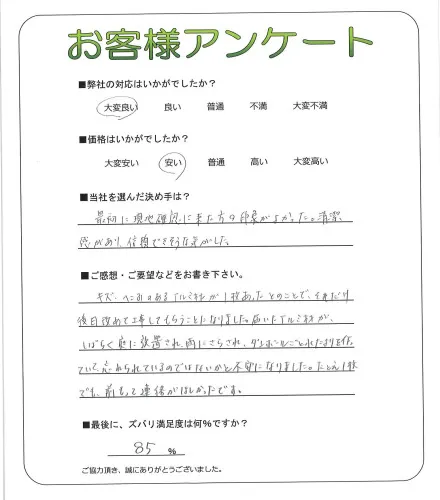 お客様アンケート
■弊社の対応はいかがでしたか？
大変良い 良い 普通 不満 大変不満
■価格はいかがでしたか？
大変安い 安い 普通 高い 大変高い
■当社を選んだ決め手は？
最初に現地確認に来た方の印象がよかった。清潔
感があり、信頼できそうな気がした。
■ご感想・ご要望などをお書き下さい。
キズ、へこみのあるアルミ材が1枚あったとのことで、それだけ
後日改めて工事してもらうことになりました。届いたアルミ材が、
しばらく庭に放置され、雨にさらされ、ダンボールごとれた
ていて、忘れられているのではないかと不安になりました。たとえ1枚
でも、前もって連絡がほしかったです。
■最後に、ズバリ満足度は何%ですか？
85 %
ご協力頂き、誠にありがとうございました。